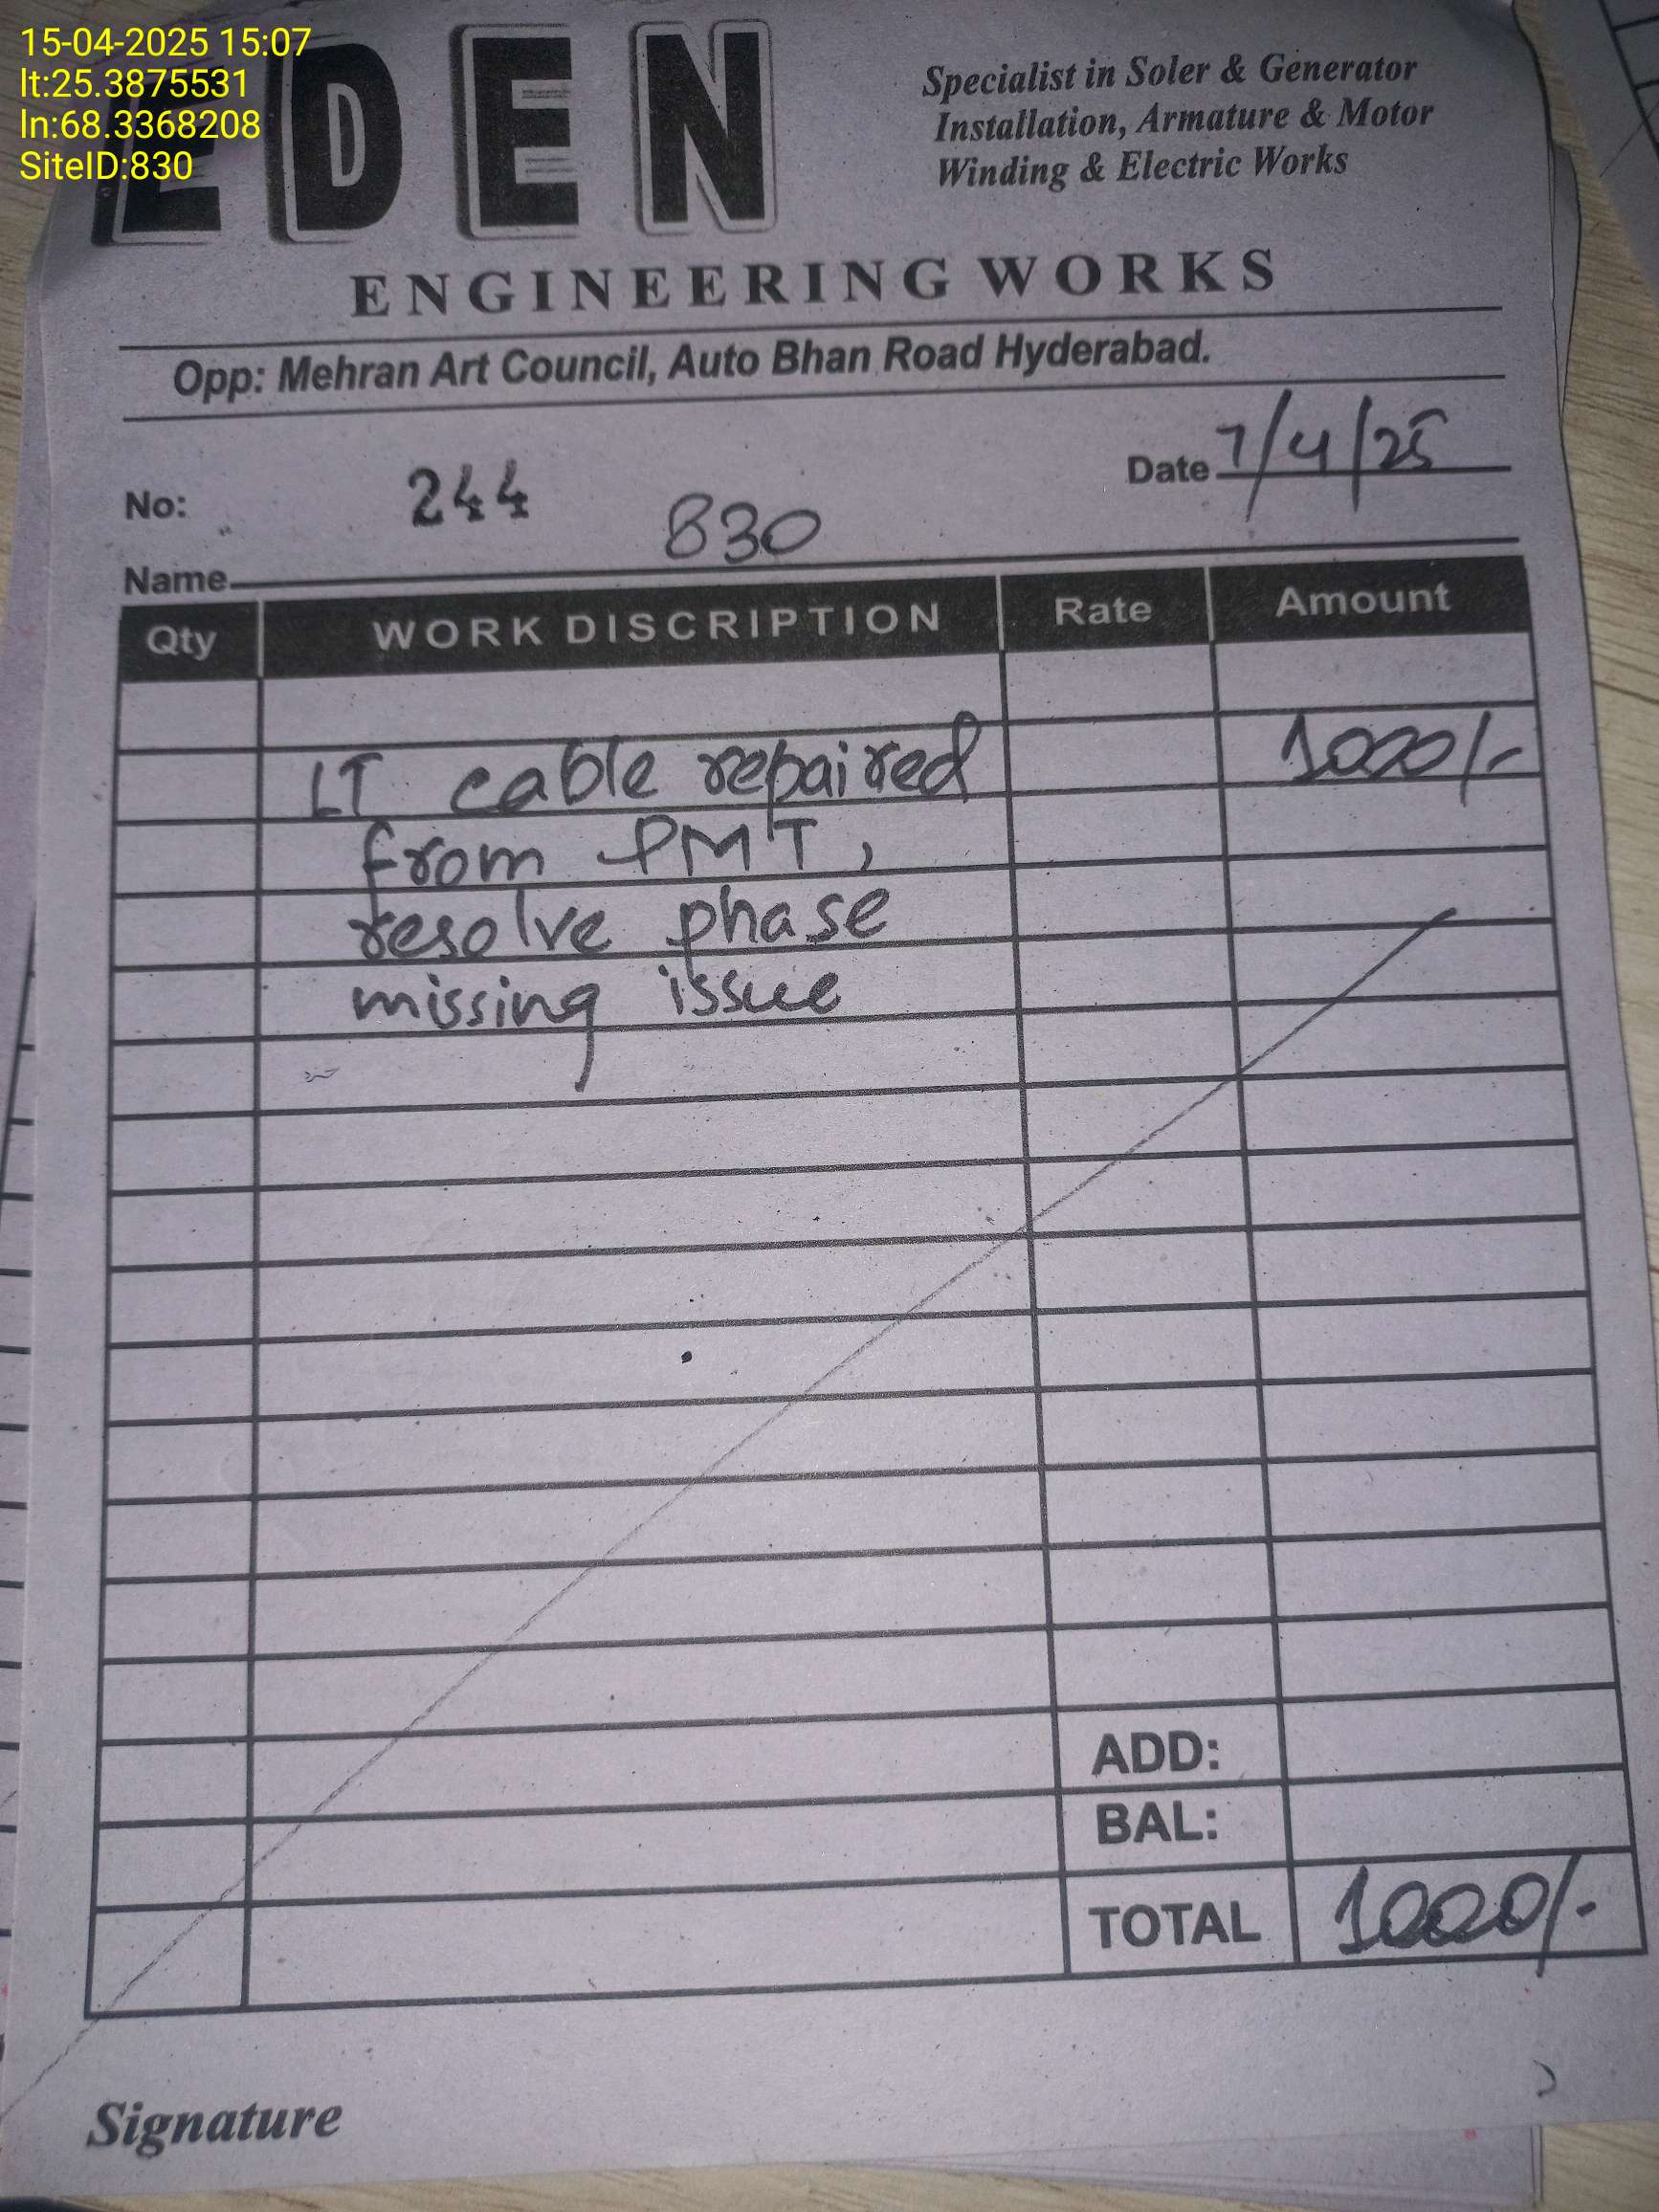 15-04-2025 15:07
lt:25.3875531
ln:68.3368208
SiteID:830
EDEN
Specialist in Soler & Generator
Installation, Armature & Motor
Winding & Electric Works
ENGINEERING WORKS
Opp: Mehran Art Council, Auto Bhan Road Hyderabad.
No: 244
Date 7/4/25
Name 830
Qty WORK DISCRIPTION Rate Amount
LT cable repaired 1000/-
from PMT,
resolve phase
missing issue
ADD:
BAL:
TOTAL 1000/-
Signature